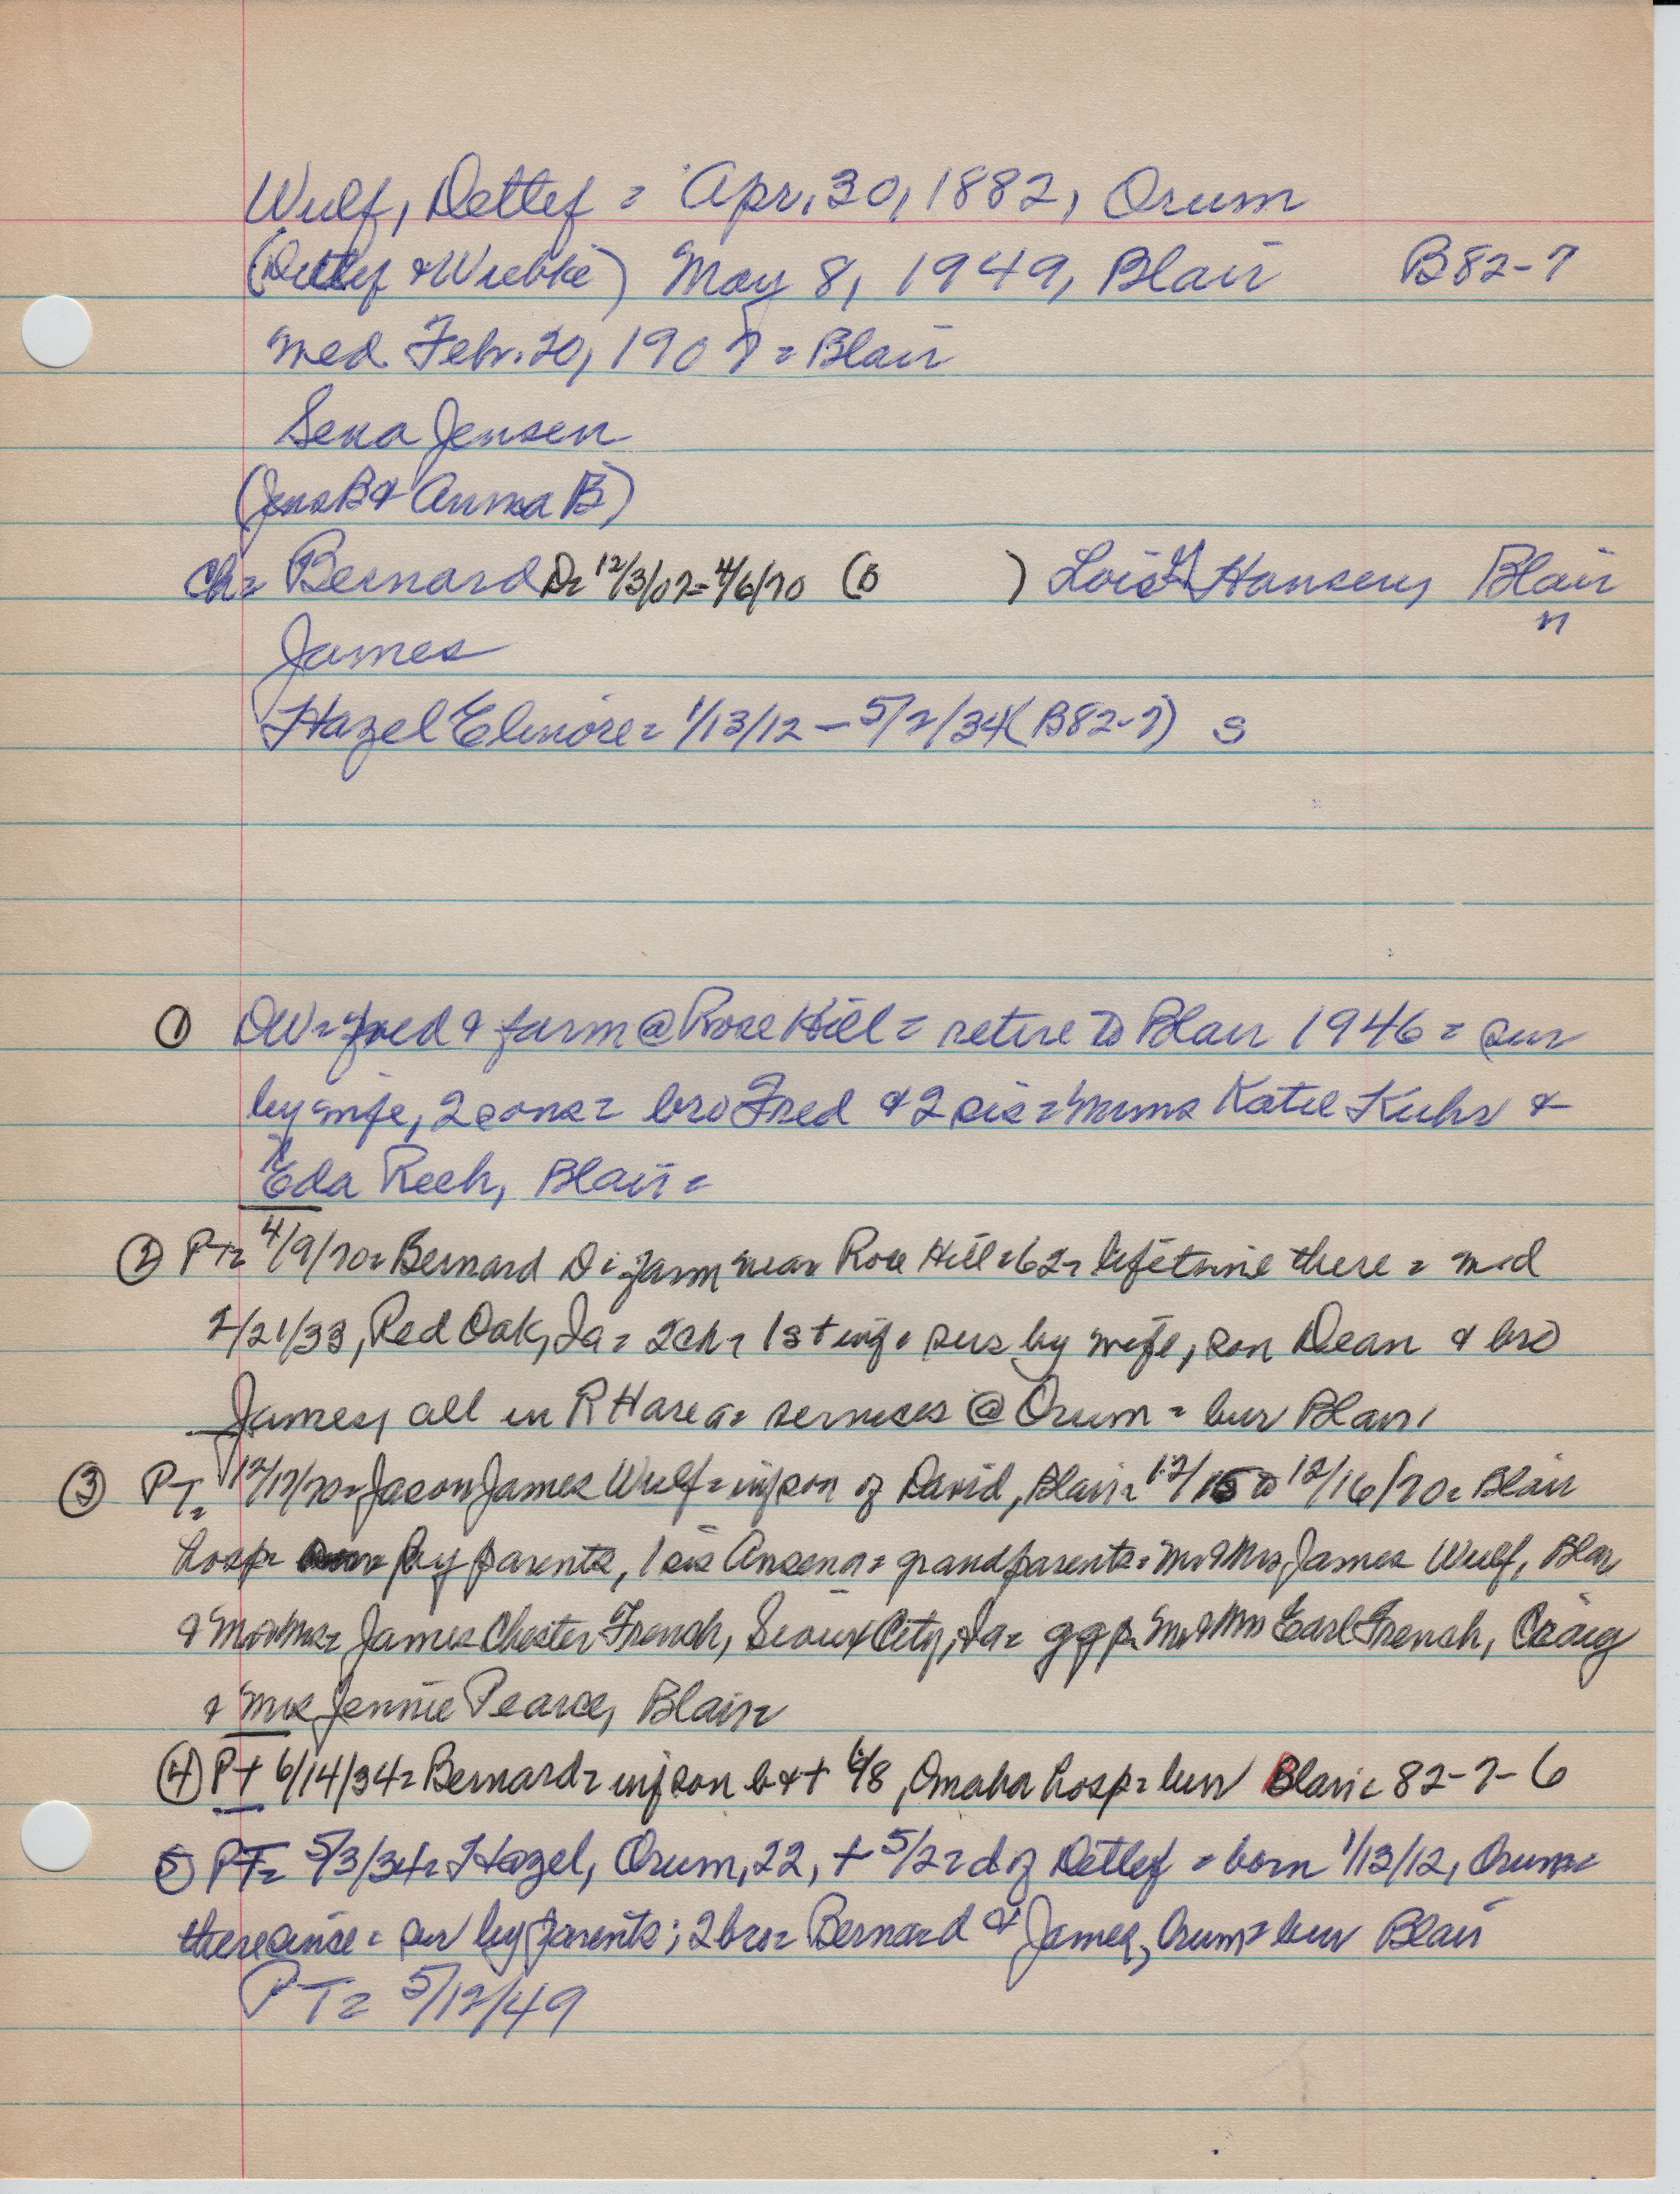 Wulf, Detlef = Apr. 30, 1882, Orum
(Detlef & Wiebke) May 8, 1949, Blair B82-7
med Febr. 20, 1907 = Blair
Sena Jensen
(Jens B & Anna B)
Ch = Bernard D = 12/3/07 = 4/6/70 (B ) Lois Hansen, Blair
James "
Hazel Elinore = 1/13/12 - 5/2/34 (B82-7) S
① DW = & farm @ Rose Hill = retire to Blair 1946 = sur
by wife, 2 sons = bro Fred & 2 sis = mmes Katie Kuhr &
Eda Reeh, Blair =
② PT = 4/9/70 = Bernard D = farm near Rose Hill = 62 = lifetime there = med
2/21/33, Red Oak, Ia = 2 ch = 1st inf = sur by wife, son Dean & bro
James, all in RH area = services @ Orum = bur Blair
③ PT = 12/17/70 = Jason James Wulf = inf son of David, Blair = 12/15 to 12/16/70 = Blair
hosp = by parents, 1 sis = grandparents = Mr & Mrs James Wulf, Blair
& Mr & Mrs = James Chester French, Sioux City, Ia = ggp = Mr & Mrs Earl French, Craig
& Mrs Jennie Pearce, Blair =
④ PT 6/14/34 = Bernard = inf son b & + 6/8, Omaha hosp = bur Blair = 82-7-6
⑤ PT = 5/3/34 = Hazel, Orum, 22, + 5/2 = d of Detlef = born 1/13/12, Orum =
there since = sur by parents; 2 bro = Bernard & James, Orum = bur Blair
PT = 5/12/49